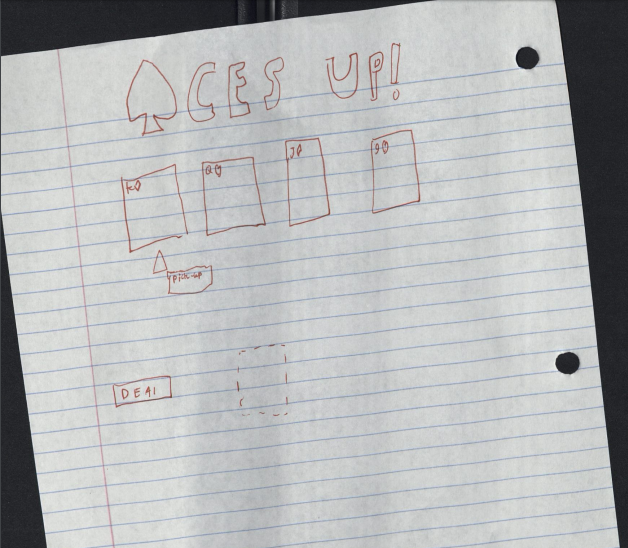 ♠CES UP!
K♦ Q♦ J♦ 9♦
PICK-UP
DEAl